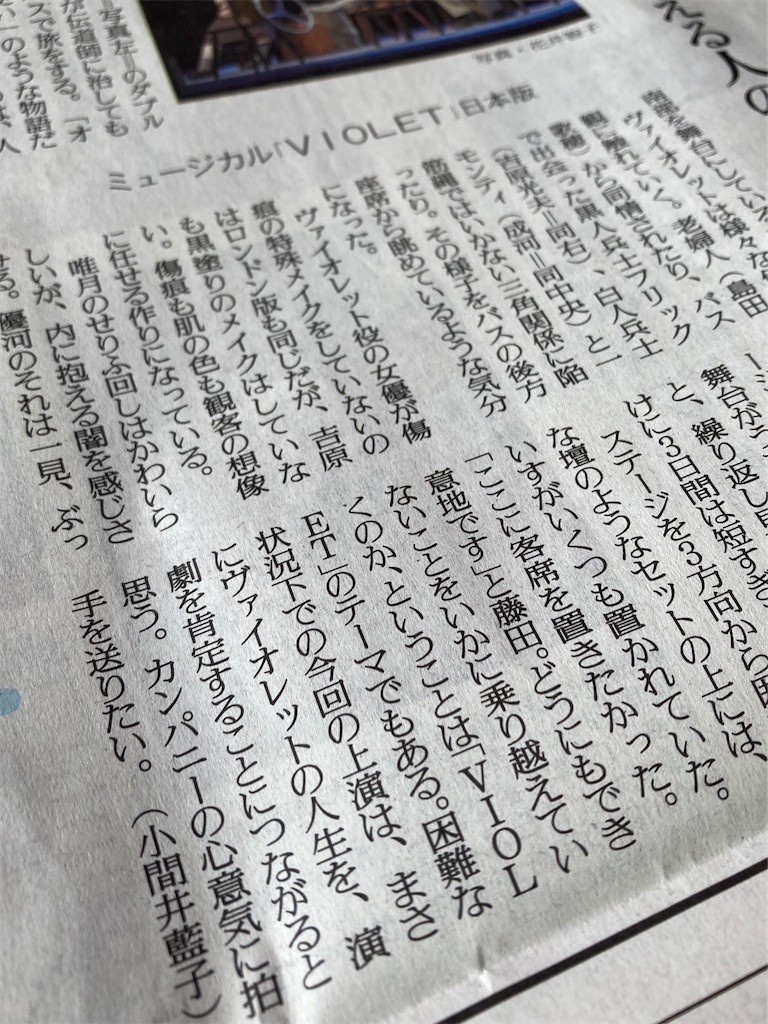 える人の
写真・花井智子
ミュージカル「VIOLET」日本版
=写真左=のダブル
が伝道師に治しても
スで旅をする。「オ
い」のような物語だ
南部を舞台にしている
ヴァイオレットは様々な
観に触れていく。老婦人(島田
歌穂)から同情されたり、バス
で出会った黒人兵士フリック
(吉原光夫=同右)、白人兵士
モンティ(成河=同中央)と一
筋縄ではいかない三角関係に陥
ったり。その様子をバスの後方
座席から眺めているような気分
になった。
ヴァイオレット役の女優が傷
痕の特殊メイクをしていないの
はロンドン版も同じだが、吉原
も黒塗りのメイクはしていな
い。傷痕も肌の色も観客の想像
に任せる作りになっている。
唯月のせりふ回しはかわいら
しいが、内に抱える闇を感じさ
せる。優河のそれは一見、ぶっ
舞台がう
と、繰り返し見
けに3日間は短すぎ
ステージを3方向から囲
な壇のようなセットの上には、
いすがいくつも置かれていた。
「ここに客席を置きたかった。
意地です」と藤田。どうにもでき
ないことをいかに乗り越えてい
くのか、ということは「VIOL
ET」のテーマでもある。困難な
状況下での今回の上演は、まさ
にヴァイオレットの人生を、演
劇を肯定することにつながると
思う。カンパニーの心意気に拍
手を送りたい。(小間井藍子)